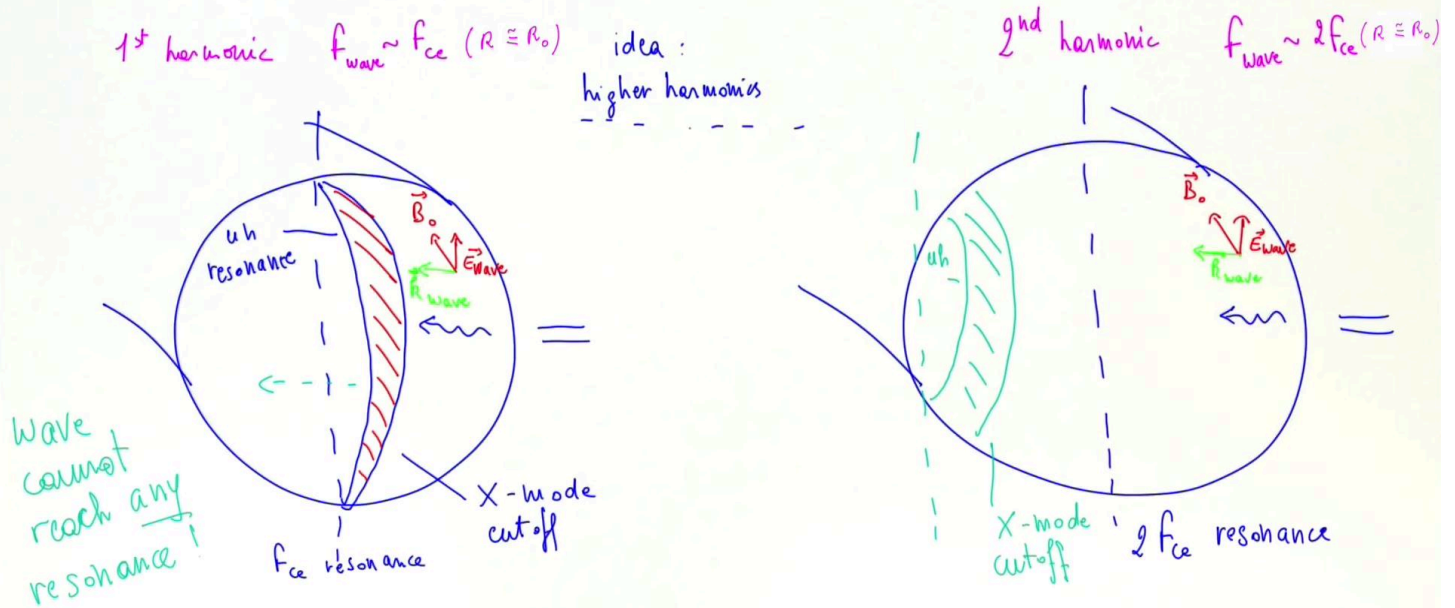 1st harmonic f_wave ~ f_ce (R ≅ R_0)
idea :
higher harmonics
2nd harmonic f_wave ~ 2f_ce (R ≅ R_0)
uh
resonance
B_0
E_wave
k_wave
wave
cannot
reach any
resonance !
X-mode
cutoff
f_ce resonance
uh
B_0
E_wave
k_wave
X-mode
cutoff
2 f_ce resonance